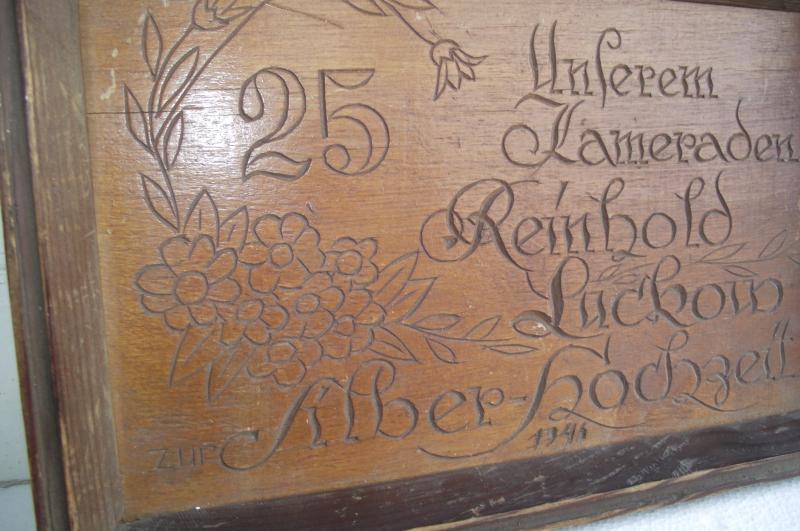 25
Unserem
Kameraden
Reinhold
Luckow
zur Silber-Hochzeit